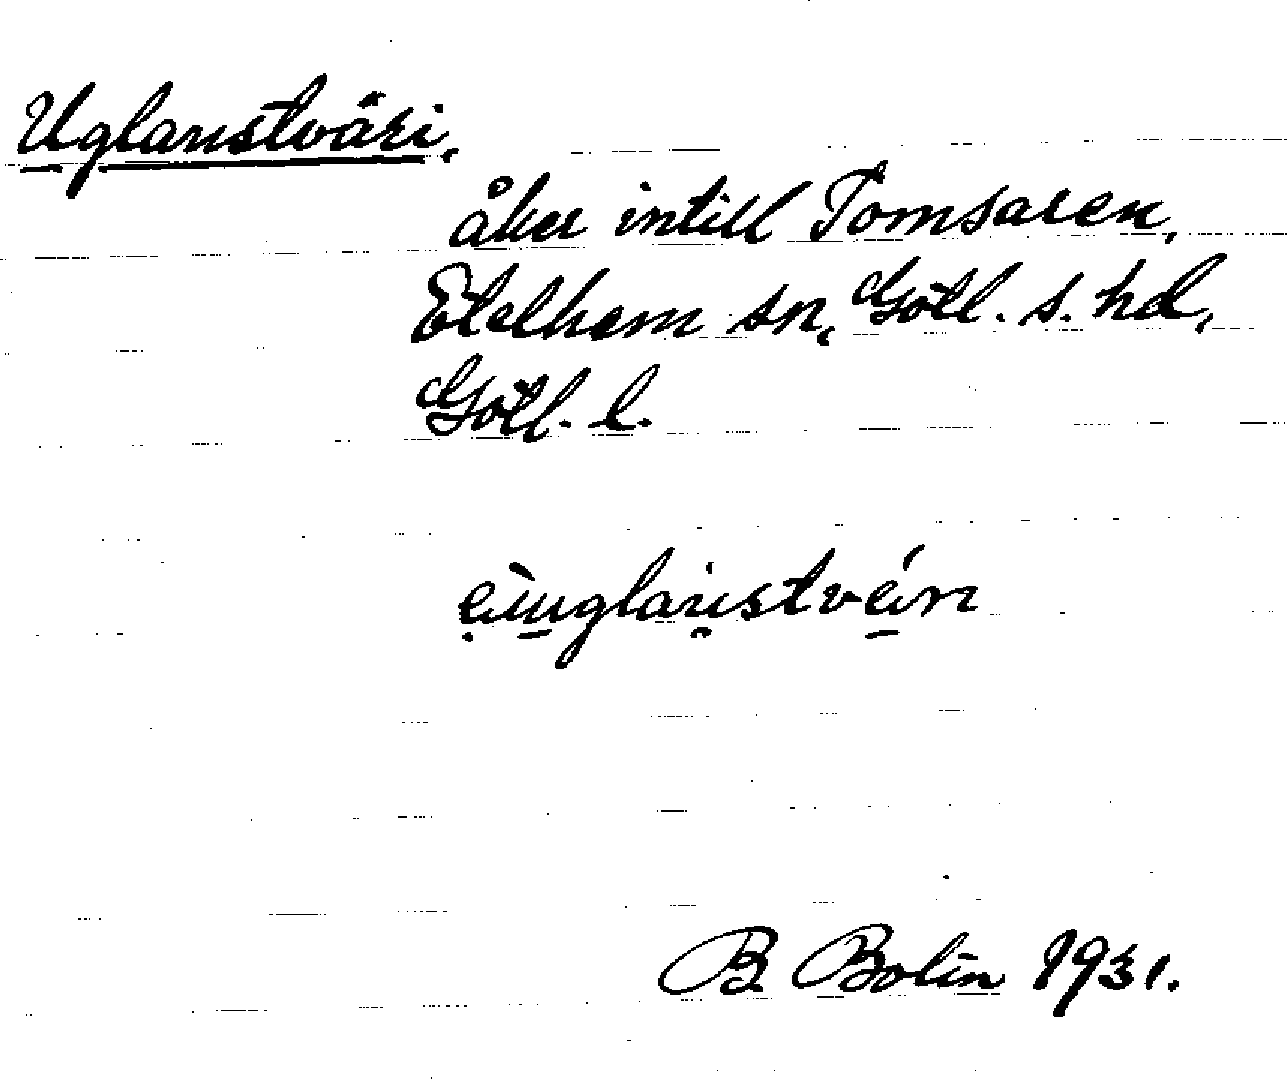 Uglaustväri,
åker intill Tomsaren,
Etelhem sn, Gotl. s. hd,
Gotl. l.
B. Bolin 1931.